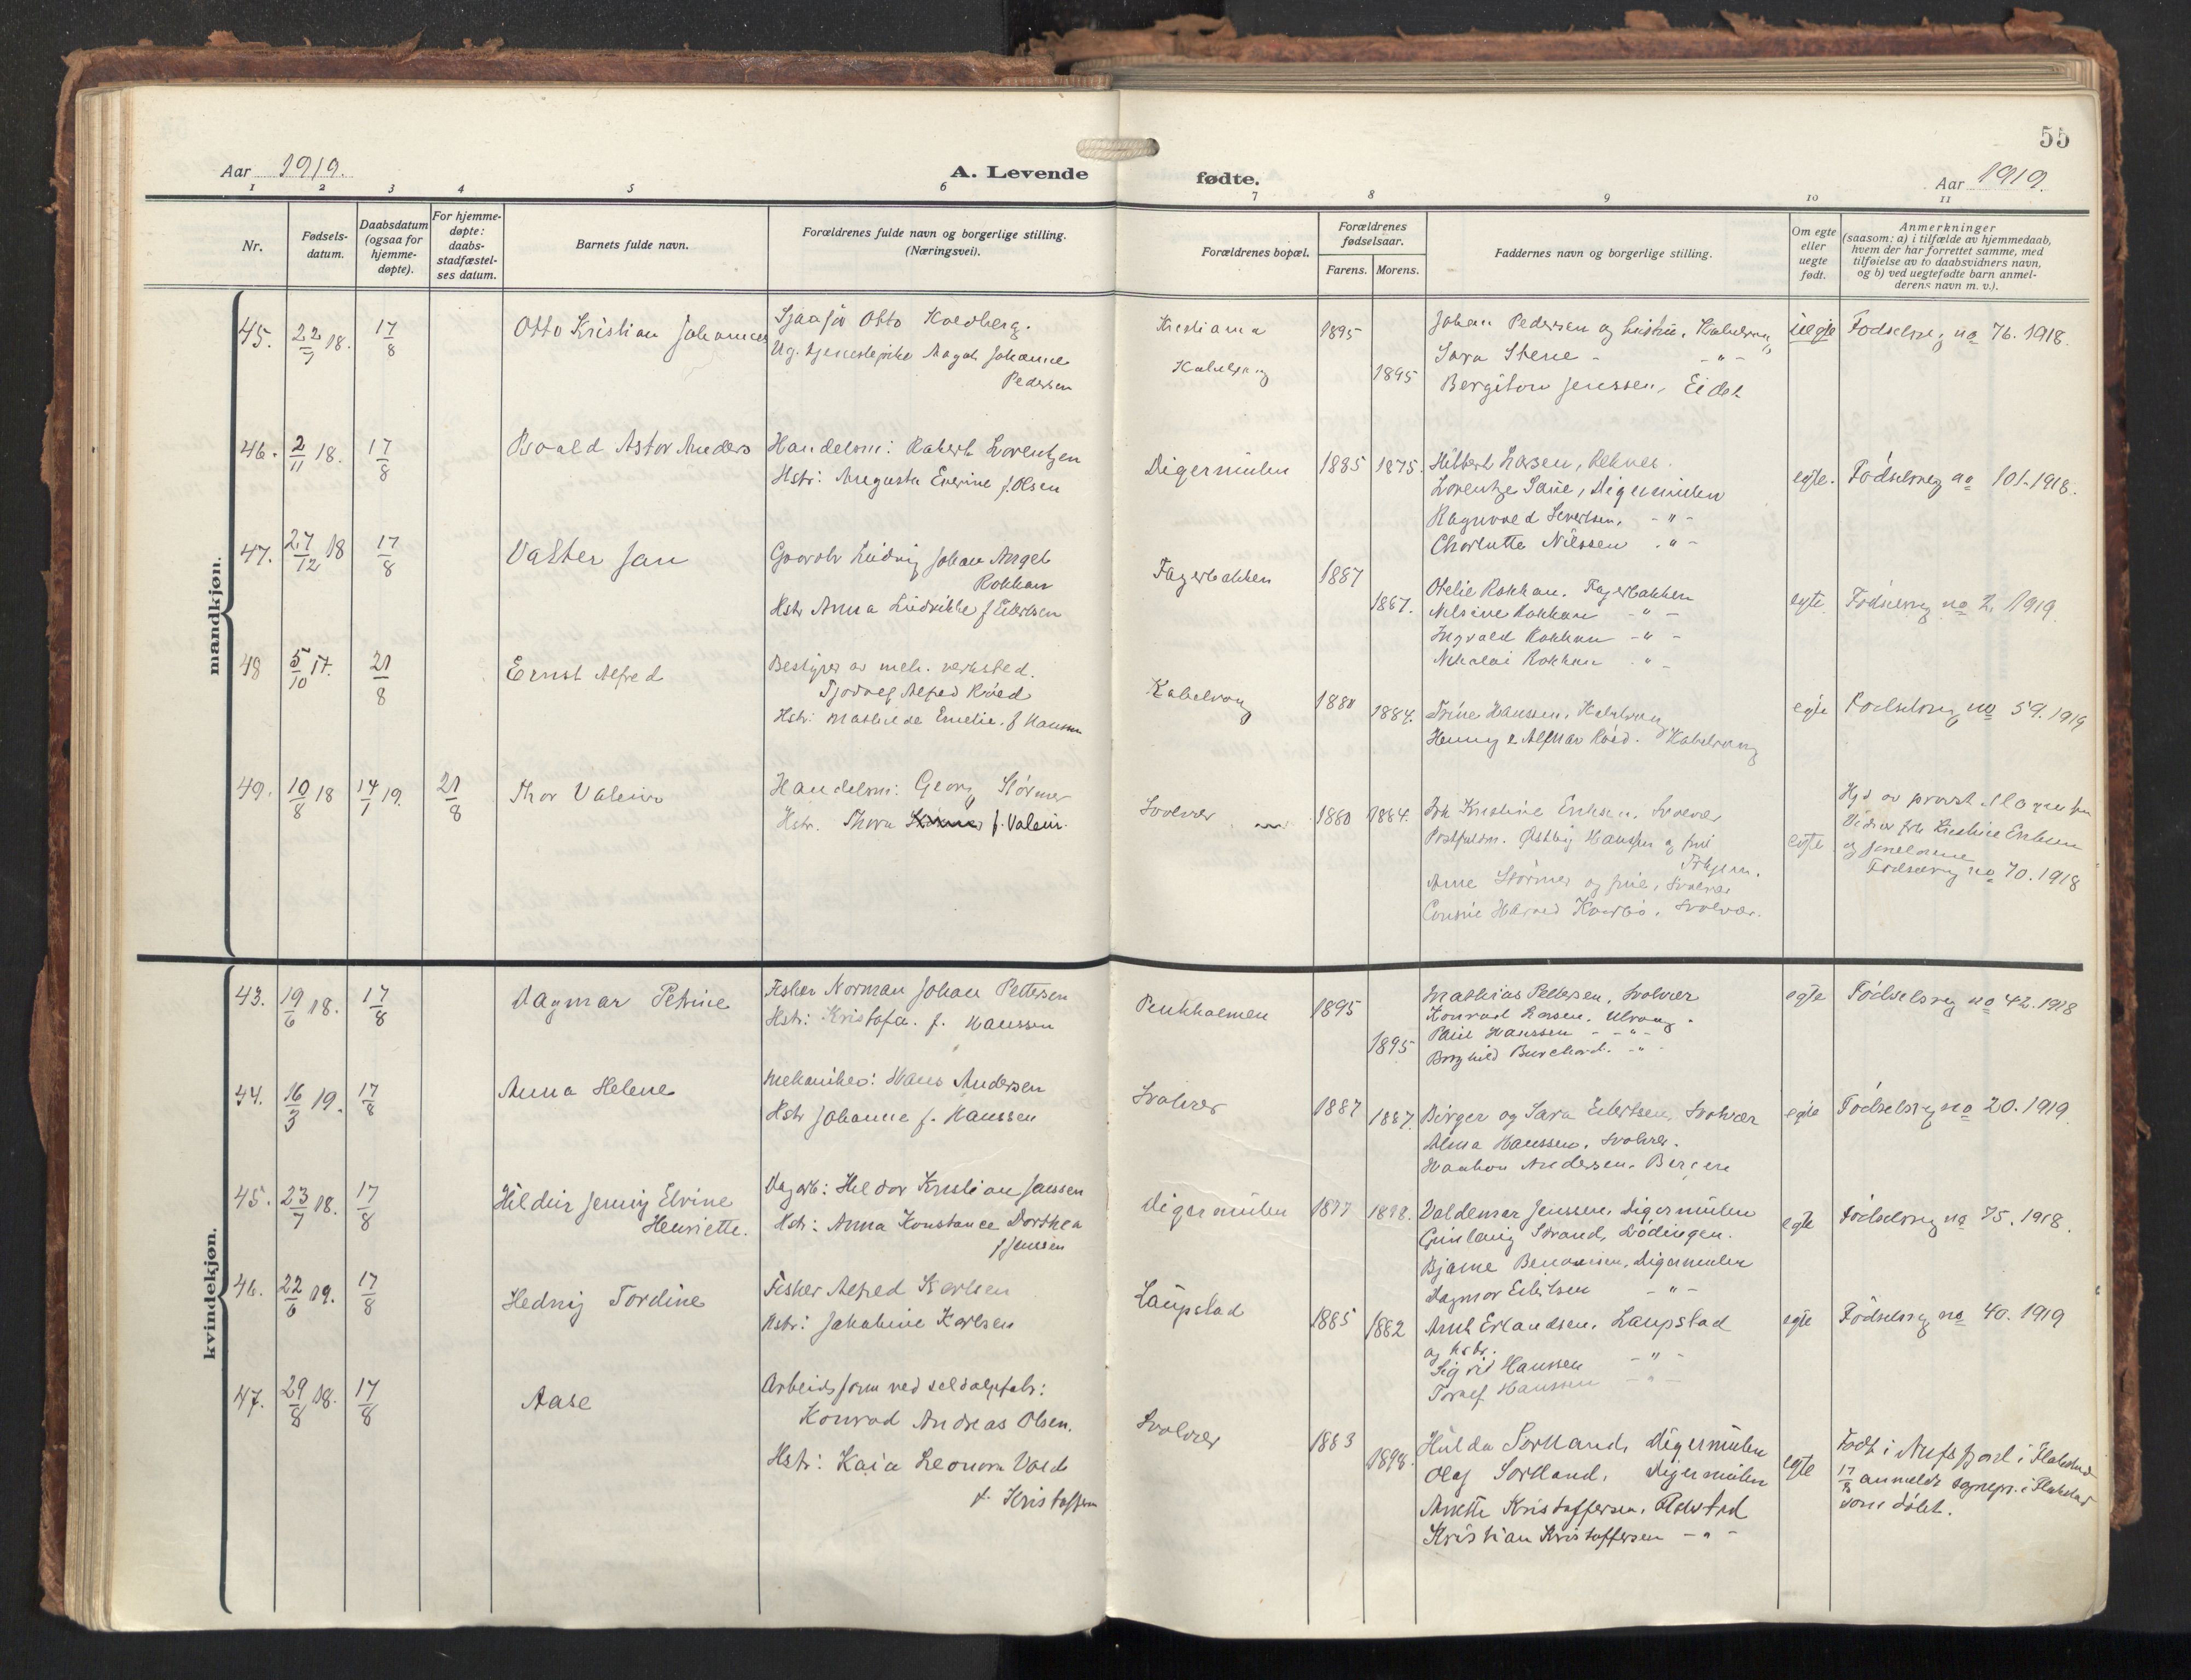 55
Aar 1919.
A. Levende
fødte.
Aar 1919.
1 2 3 4 5 6 7 8 9 10 11
Nr.
Fødsels-
datum.
Daabsdatum
(ogsaa for
hjemme-
døpte).
For hjemme-
døpte:
daabs-
stadfæstel-
ses datum.
Barnets fulde navn.
Forældrenes fulde navn og borgerlige stilling.
(Næringsvei).
Forældrenes bopæl.
Forældrenes
fødselsaar.
Farens. Morens.
Faddernes navn og borgerlige stilling.
Om egte
eller
uegte
født.
Anmerkninger
(saasom: a) i tilfælde av hjemmedaab,
hvem der har forrettet samme, med
tilføielse av to daabsvidners navn,
og b) ved uegtefødte barn anmel-
derens navn m. v.).
mandkjøn.
45. 22/7 18. 17/8 Otto Kristian Johannes
Otto Koldberg.
Ug. tjenestepike Magda Johanne
Pedersen
Kristiania
Kabelvaag
1895
1895
Johan Pedersen og hustru, Kabelvaag
Sara Stene - " -
Bergiton Jenssen, Eidet
uegte Fødselsreg no 76. 1918.
46. 2/11 18. 17/8 Astor Anders
Handelsm: Robert Lorentzen
Hstr: Augusta Everine f. Olsen
Digermulen 1885 1875.
Hilbert Larsen,
Lorentze Saue, Digermulen
Ragnvald Sivertsen, - " -
Charlotte Nilssen - " -
egte. Fødselsreg no 101. 1918.
47. 27/12 18 17/8 Valter Jan
Gaardbr Ludvig Johan Angel
Rokkan
Hstr Anna Ludvikke f Eilertsen
Fagerbakken 1887
1887.
Otelie Rokkan. Fagerbakken
Nelsine Rokkan - " -
Ingvald Rokkan - " -
Nikolai Rokkan - " -
egte Fødselsreg no 2. 1919
48 5/10 17. 21/8 Ernst Alfred
Bestyrer av mek. verksted.
Alfred Röed
Hstr: Mathilde Emelie. f Hansen
Kabelvaag 1880 1884.
Trine Hanssen, Kabelvaag
Henny & Alfmar Röed. Kabelvaag
egte Fødselsreg no 59. 1919
49. 10/8 18 14/1 19. 21/8 Thor Valeur
Handelsm: Georg Störmer
Hstr. Thora f. Valeur.
Svolvær 1880 1884.
Frk Kristine Eriksen, Svolvær
Postfuldm. Østbÿ Hanssen og frue
Arne Störmer og frue, Svolvær
Svolvær.
egte
Hjd av provst
Vidner frk Kristine Eriksen
og forældrene
Fødselsreg no 70. 1918
kvindekjøn.
43. 19/6 18. 17/8 Dagmar Petrine
Fisker Norman Johan Pettersen
Hstr: Kristofa. f. Hanssen
1895
1895
Mathias Pettersen, Svolvær
Konrad Larsen, Ulvaag.
Paul Hanssen - " -
Borghild Burchard. - " -
egte Fødselsreg no 42. 1918
44. 16/3 19. 17/8 Anna Helene
Mekaniker: Hans Andersen
Hstr Johanne f. Hanssen
Svolvær 1887 1887.
Birger og Sara Eilertsen, Svolvær
Alma Hanssen, Svolvær.
Haakon Andersen, Bergen
egte Fødselsreg no 20. 1919
45. 23/7 18. 17/8 Hildur Jenny Elvine
Henriette.
Dagarb: Hildor Kristian Janssen
Hstr: Anna Konstance Dorthea
f Jenssen
Digermulen 1877 1878.
Valdemar Jenssen, Digermulen
Gunlaug Strand, Lødingen.
Bjarne Benonisen, Digermulen
Dagmar Eilertsen - " -
egte Fødselsreg no 75. 1918.
46. 22/6 19. 17/8 Hedvig Tordine
Fisker Alfred Karlsen
Hstr: Jakobine Karlsen
Laupstad 1885 1882
Arnt Erlandsen. Laupstad
og hstr.
Sigrid Hanssen - " -
Toralf Hanssen - " -
egte Fødselsreg no 40. 1919
47. 29/8 18. 17/8 Aase
Arbeidsform ved sildoljefabr:
Konrad Andreas Olsen.
Hstr: Kaia Leonora Vold
f. Kristoffersen
Svolvær 1883
1898.
Hulda Sortland, Digermulen
Olaf Sortland, Digermulen
Anette Kristoffersen,
Kristian Kristoffersen - " -
egte
Født i Nufsfjord i Flakstad
17/8 anmeldt sognepr. i Flakstad
som døbt.